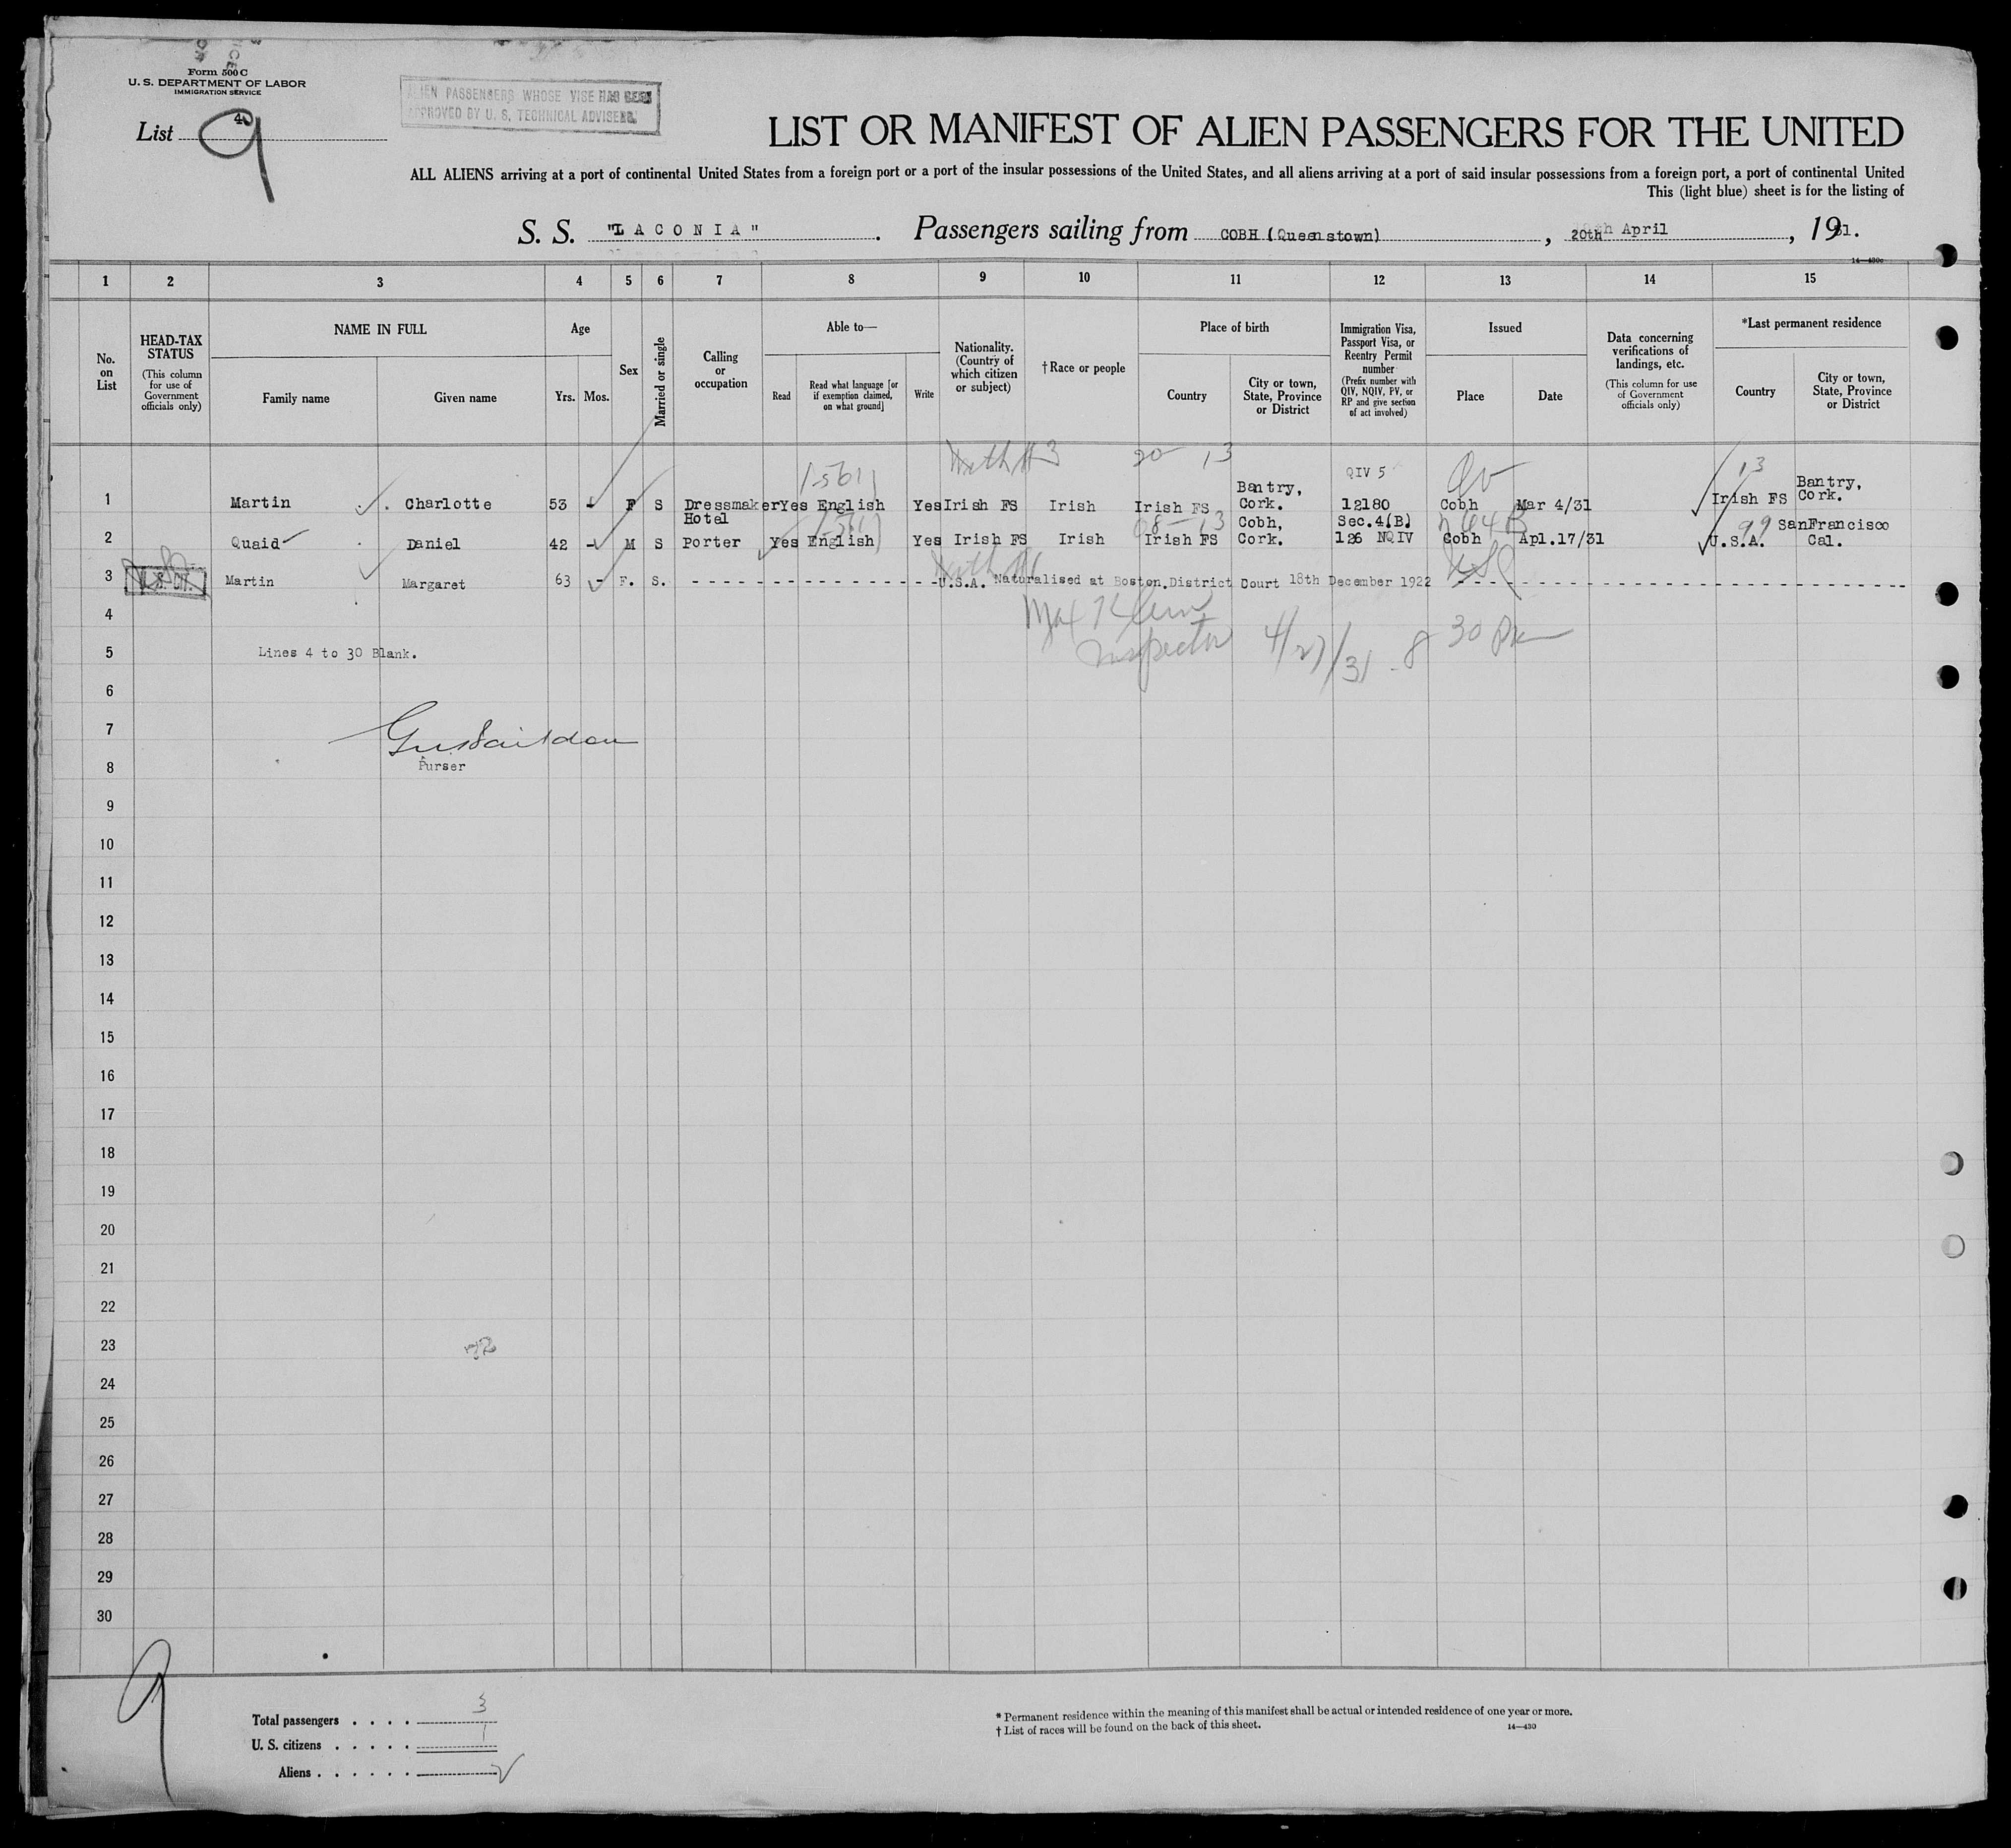 Form 500 C
U. S. DEPARTMENT OF LABOR
IMMIGRATION SERVICE
List 9
ALIEN PASSENGERS WHOSE VISE HAS BEEN
APPROVED BY U. S. TECHNICAL ADVISER.
LIST OR MANIFEST OF ALIEN PASSENGERS FOR THE UNITED
ALL ALIENS arriving at a port of continental United States from a foreign port or a port of the insular possessions of the United States, and all aliens arriving at a port of said insular possessions from a foreign port, a port of continental United
This (light blue) sheet is for the listing of
S. S. "LACONIA" . Passengers sailing from COBH (Queenstown) , 20th April , 1931.
14—430c
1 2 3 4 5 6 7 8 9 10 11 12 13 14 15
No. on List
HEAD-TAX STATUS (This column for use of Government officials only)
NAME IN FULL
Family name Given name
Age
Yrs. Mos.
Sex
Married or single
Calling or occupation
Able to—
Read Read what language [or if exemption claimed, on what ground] Write
Nationality. (Country of which citizen or subject)
†Race or people
Place of birth
Country City or town, State, Province or District
Immigration Visa, Passport Visa, or Reentry Permit number (Prefix number with QIV, NQIV, PV, or RP and give section of act involved)
Issued
Place Date
Data concerning verifications of landings, etc. (This column for use of Government officials only)
*Last permanent residence
Country City or town, State, Province or District
20 13 QIV 5 13
1 Martin Charlotte 53 - F S Dressmaker Yes English Yes Irish FS Irish Irish FS Bantry, Cork. 12180 Cobh Mar 4/31 Irish FS Bantry, Cork.
2 Quaid Daniel 42 - M S Hotel Porter Yes English Yes Irish FS Irish Irish FS Cobh, Cork. Sec.4(B) 126 NQIV Cobh Apl.17/31 U.S.A. 99 SanFrancisco Cal.
3 Martin Margaret 63 - F. S. - - - - U.S.A. Naturalised at Boston.District Court 18th December 1922 - - - -
4 Max Klein
5 Lines 4 to 30 Blank. Inspector 4/27/31 8 30 PM
6
7
8 Purser
9
10
11
12
13
14
15
16
17
18
19
20
21
22
23
24
25
26
27
28
29
30
9
Total passengers . . . . 3
U. S. citizens . . . . . 1
Aliens . . . . . . 2
* Permanent residence within the meaning of this manifest shall be actual or intended residence of one year or more.
† List of races will be found on the back of this sheet. 14—430